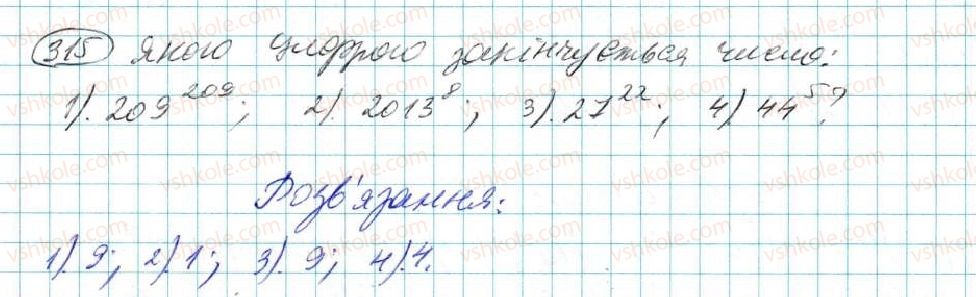 315 Якою цифрою закінчується число:
1). 209^209; 2). 2013^8; 3). 27^22; 4). 44^5?
Розв'язання:
1). 9; 2). 1; 3). 9; 4). 4.
vshkole.com